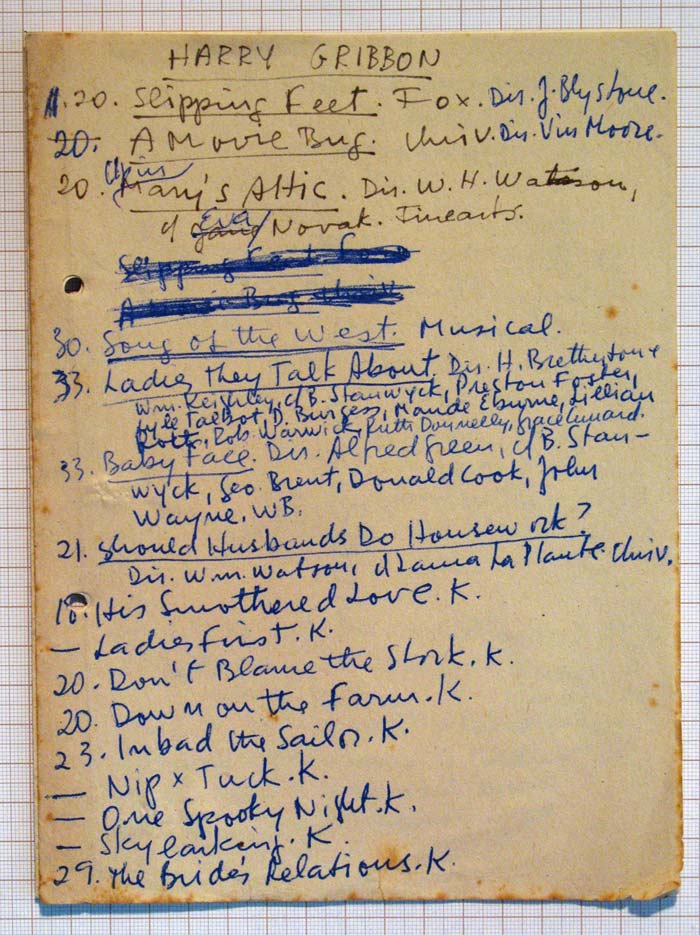 HARRY GRIBBON
20. Slipping Feet. Fox. Dir. J. Blystone.
20. A Movie Bug. Univ. Dir. Vin Moore.
Univ
20. Mary's Attic. Dir. W. H. Watson,
c/ Eva Novak. Finearts.
Slipping Feet Fox
A Movie Bug Univ
30. Song of the West. Musical.
33. Ladies they Talk About. Dir. H. Bretherton &
Wm. Keighley, c/ B. Stanwyck, Preston Foster,
Lyle Talbot, D. Burgess, Maude Eburne, Lillian
Roth, Rob. Warwick, Ruth Donnelly, Grace Cunard.
33. Baby Face. Dir. Alfred Green, c/ B. Stan-
wyck, Geo. Brent, Donald Cook, John
Wayne. WB.
21. Should Husbands Do Housework?
Dir. Wm. Watson, c/ Laura La Plante. Univ.
18. His Smothered Love. K.
— Ladies First. K.
20. Don't Blame the Stork. K.
20. Down on the Farm. K.
23. Inbad the Sailor. K.
— Nip x Tuck. K.
— One Spooky Night. K.
— Skylarking. K
29. The Bride's Relations. K.